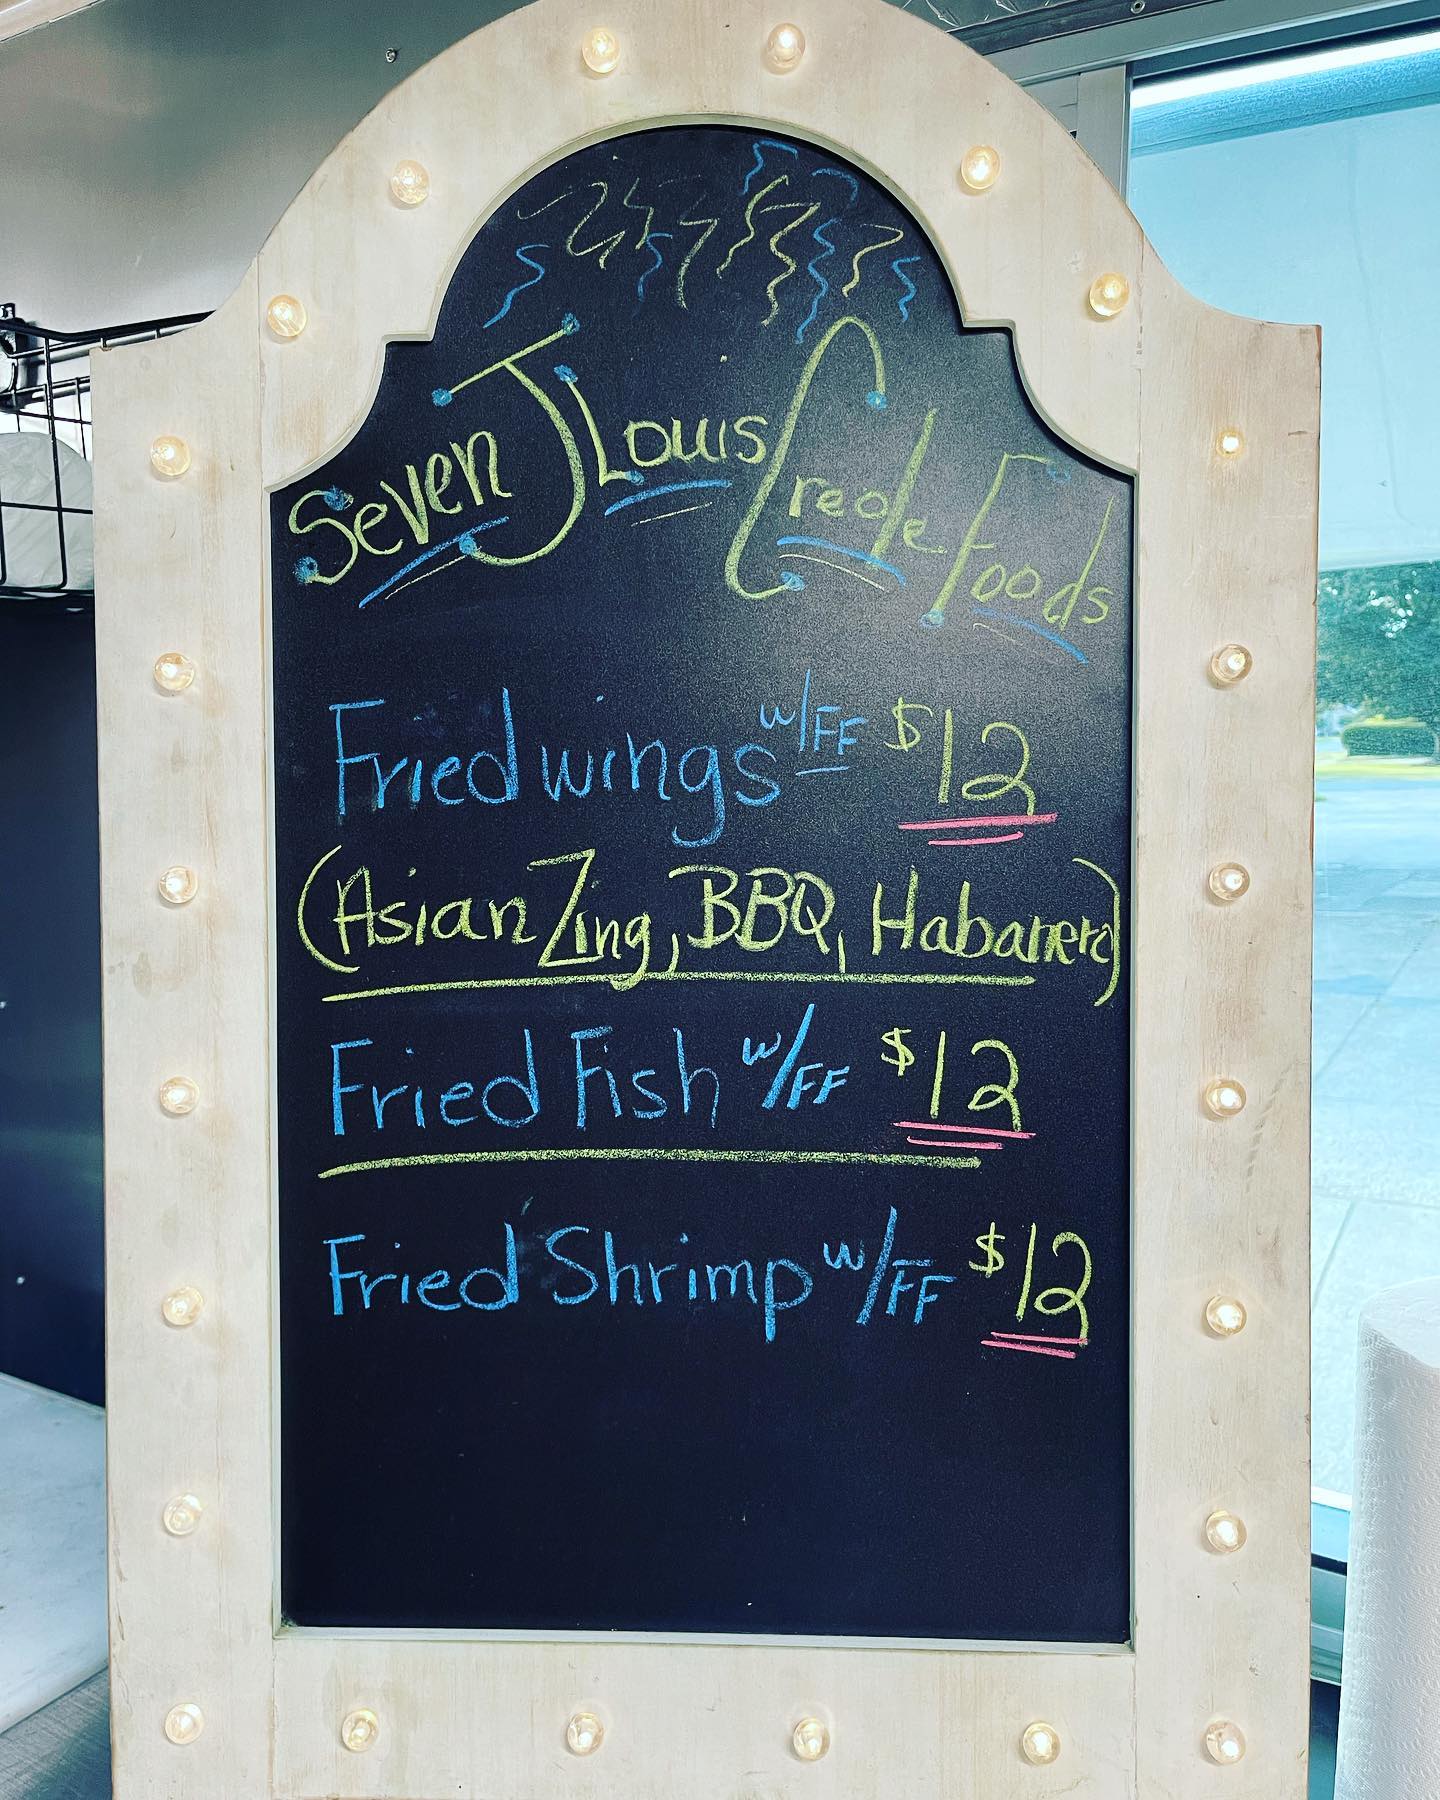 Seven J Louis Creole Foods
Fried wings w/FF $12
(Asian Zing, BBQ, Habanero)
Fried Fish w/FF $12
Fried Shrimp w/FF $12